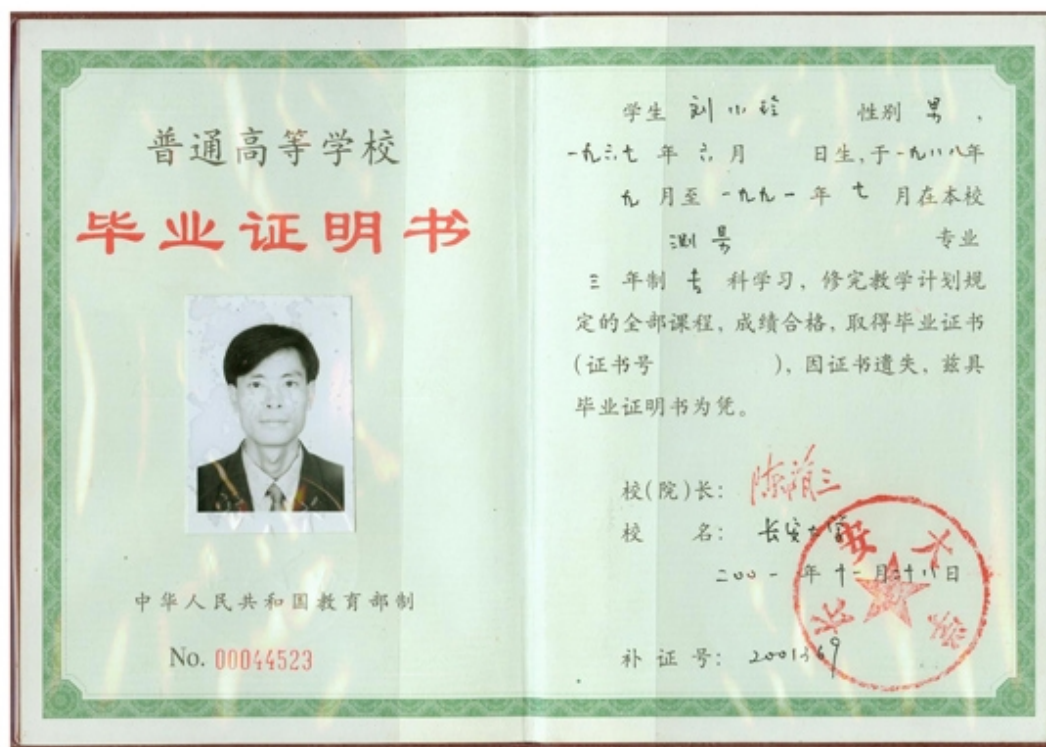 普通高等学校
毕业证明书
中华人民共和国教育部制
No. 00044523
学生 刘小玲 性别 男,
一九六七 年 六 月 日生,于一九八八年
九 月至 一九九一 年 七 月在本校
测 专业
三 年制 专 科学习, 修完教学计划规
定的全部课程, 成绩合格, 取得毕业证书
(证书号 ), 因证书遗失, 兹具
毕业证明书为凭。
校(院)长: 陈荫三
校 名: 长安大学
二00一 年 十一 月 二十八 日
补 证 号: 2001369
长安大学